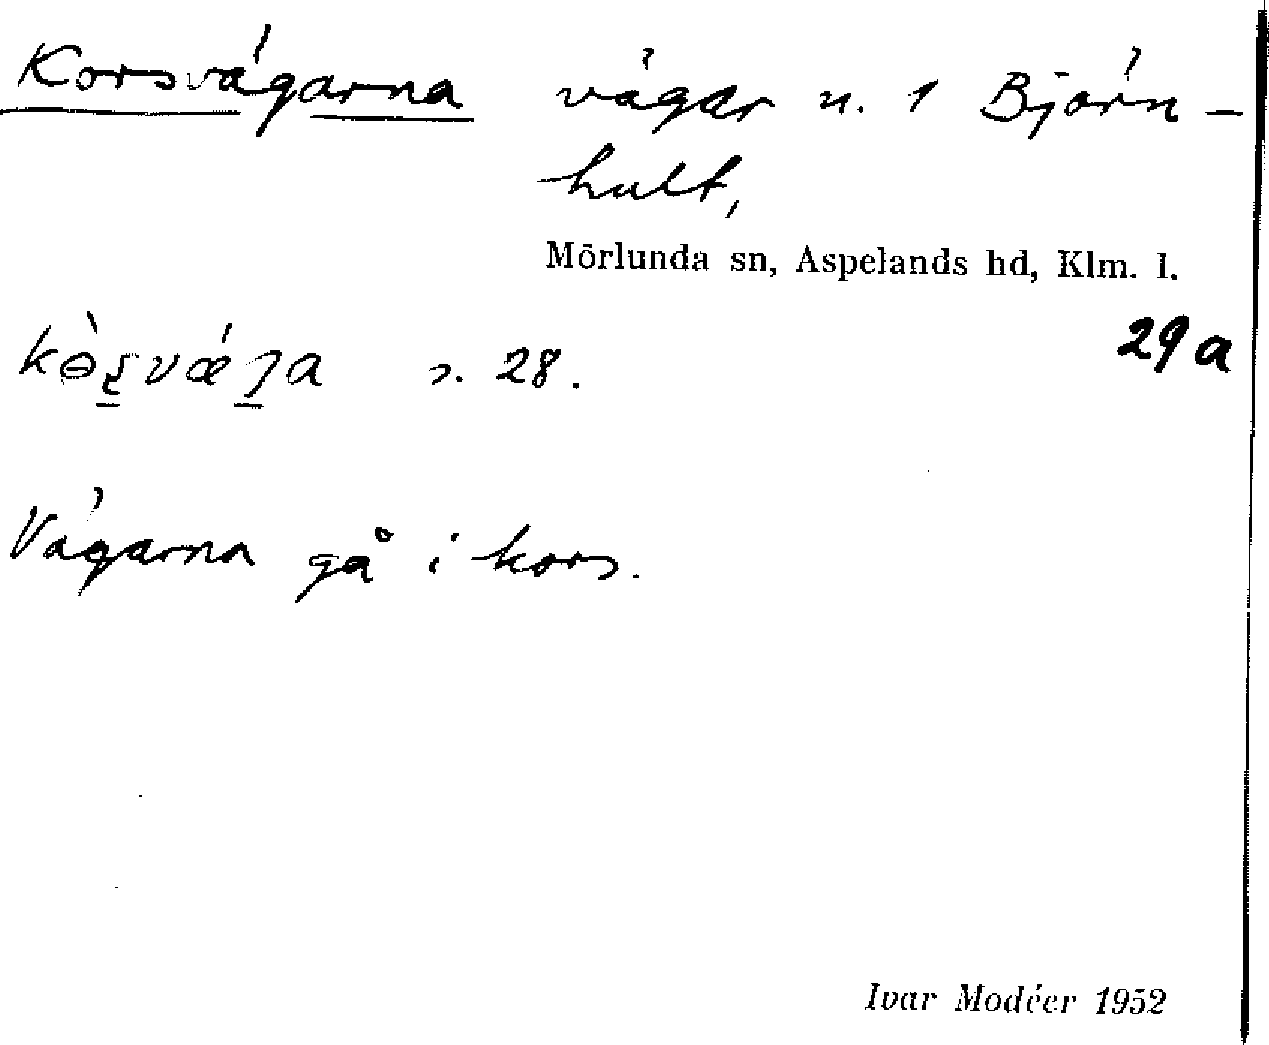 Korsvägarna vägar n. 1 Björn-
hult,
Mörlunda sn, Aspelands hd, Klm. l.
29a
s. 28.
Vägarna gå i kors.
Ivar Modéer 1952